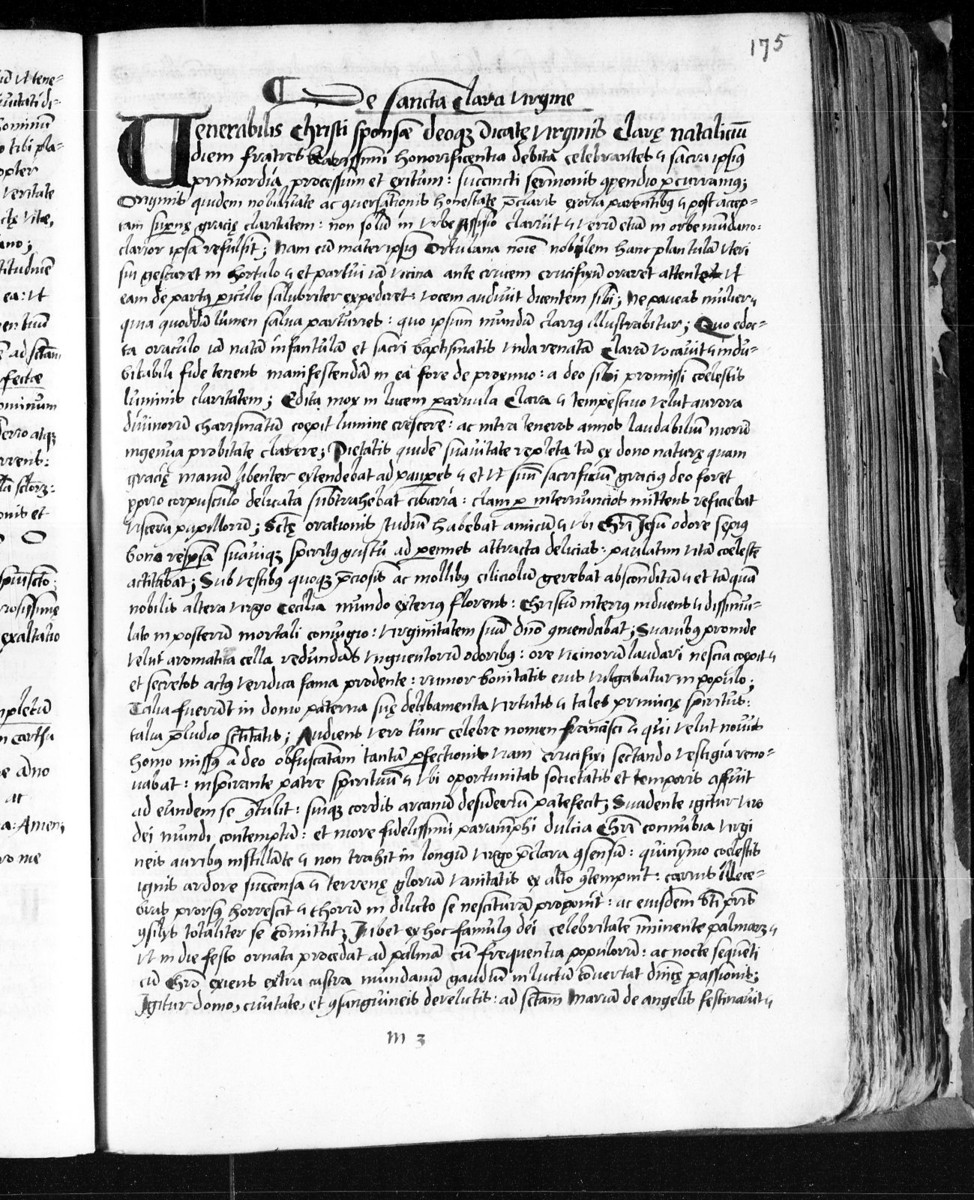 175
¶ De sancta Clara virgine
Venerabilis Christi sponsæ deoq; dicatę virginis Clarę nataliciũ
diem fratres karissimi honorificentia debita celebrantes sacra ipsiꝰ
primordia processum et exitum: succincti sermonis cõpendio ꝑcurramꝰ;
Originis quidem nobilitate ac cõuersationis honestate p̃claris exorta parentibꝰ post accep-
tam supnę gracię claritatem: non solũ in vrbe Assisio claruit verũ etiã in orbe mundano:
clarior ipsa refulsit; Nam cũ mater ipsiꝰ Ortulana noĩe nobilem hanc plantulã vteri
sui gestaret in hortulo et partui iã vicina ante crucem crucifixũ oraret attente vt
eam de partꝰ ꝑiculo salubriter expediret: vocem audiuit dicentem sibi; Ne paueas mulier
quia quoddã lumen salua parturies: quo ipsum mundũ clariꝰ illustrabitur; Quo edoc-
ta oraculo iã natã infantulã et sacri baptismatis vnda renatã Clarã vocauit indu-
bitabili fide tenens manifestendã in ea fore de proximo: a deo sibi promissi coelestis
luminis claritatem; Edita mox in lucem paruula Clara tempestiuo velut aurora
diuinorũ charismatũ coepit lumine crescere: ac intra teneros annos laudabiliũ morũ
ingenua probitate clarere; Pietatis quidẽ suauitate repleta tã ex dono naturę quam
gracię manũ libenter extendebat ad paupes et vt suũ sacrificiũ graciꝰ deo foret
ꝓprio corpusculo delicata subtrahebat cibaria: clam ꝑ internuncios mittens reficiebat
viscera pupillorũ; Sctę orationis studiũ habebat amicũ vbi Chr̃i Jesu odore sepiꝰ
bono respersa suauiq; spiritꝰ gustu ad perennes attracta delicias: paulatim vitã coelestẽ
actitabat; Sub vestibꝰ quoq; p̃ciosis ac mollibꝰ ciliciolũ gerebat absconditũ et tãquã
nobilis altera virgo Cecilia mundo exteriꝰ florens: Christũ interiꝰ induens dissimu-
lato in posterũ mortali coniugio: virginitatem suã dño cõmendabat; Suauibꝰ proinde
velut aromatica cella redundãs vnguentorũ odoribꝰ: ore vicinorũ laudari nescia coepit
et secretos actꝰ veridica fama prodente: rumor bonitatis eius vulgabatur in populo.
Talia fuerũt in domo paterna suę delibamenta virtutis tales primicię spiritus:
talia p̃ludio sctitatis; Audiens vero tunc celebre nomen francisci qui velut nouus
homo missꝰ a deo obfuscatam tantã ꝑfectionis viam crucifixi sectando vestigia reno-
uabat: inspirante patre spirituũ vbi oportunitas societatis et temporis affuit
ad eundem se cõtulit: suiq; cordis arcanũ desideriũ patefecit; Suadente igitur viro
dei mundi contemptũ: et more fidelissimi paranymphi dulcia Chr̃i connubia virgi
neis auribus instillãte non trahit in longũ virgo p̃clara cõsensũ: quinymo coelestis
ignis ardore succensa terrenę gloriã vanitatis ex alto cõtempnit: carnis illece-
bras prorsꝰ horrescit thorũ in delicto se nescituram proponit: ac eiusdem bt̃i pr̃is
cõsilijs totaliter se cõmittit; Jubet ex hoc famulꝰ dei celebritate iminente palmarꝝ
vt in die festo ornata procedat ad palmã cũ frequentia populorũ: ac nocte sequenti
cũ Chr̃o exiens extra castra mundanũ gaudiũ in luctũ cõuertat dnicę passionis;
Igitur domo, ciuitate, et cõsanguineis derelictis: ad sctam Mariã de angelis festinauit
m 3